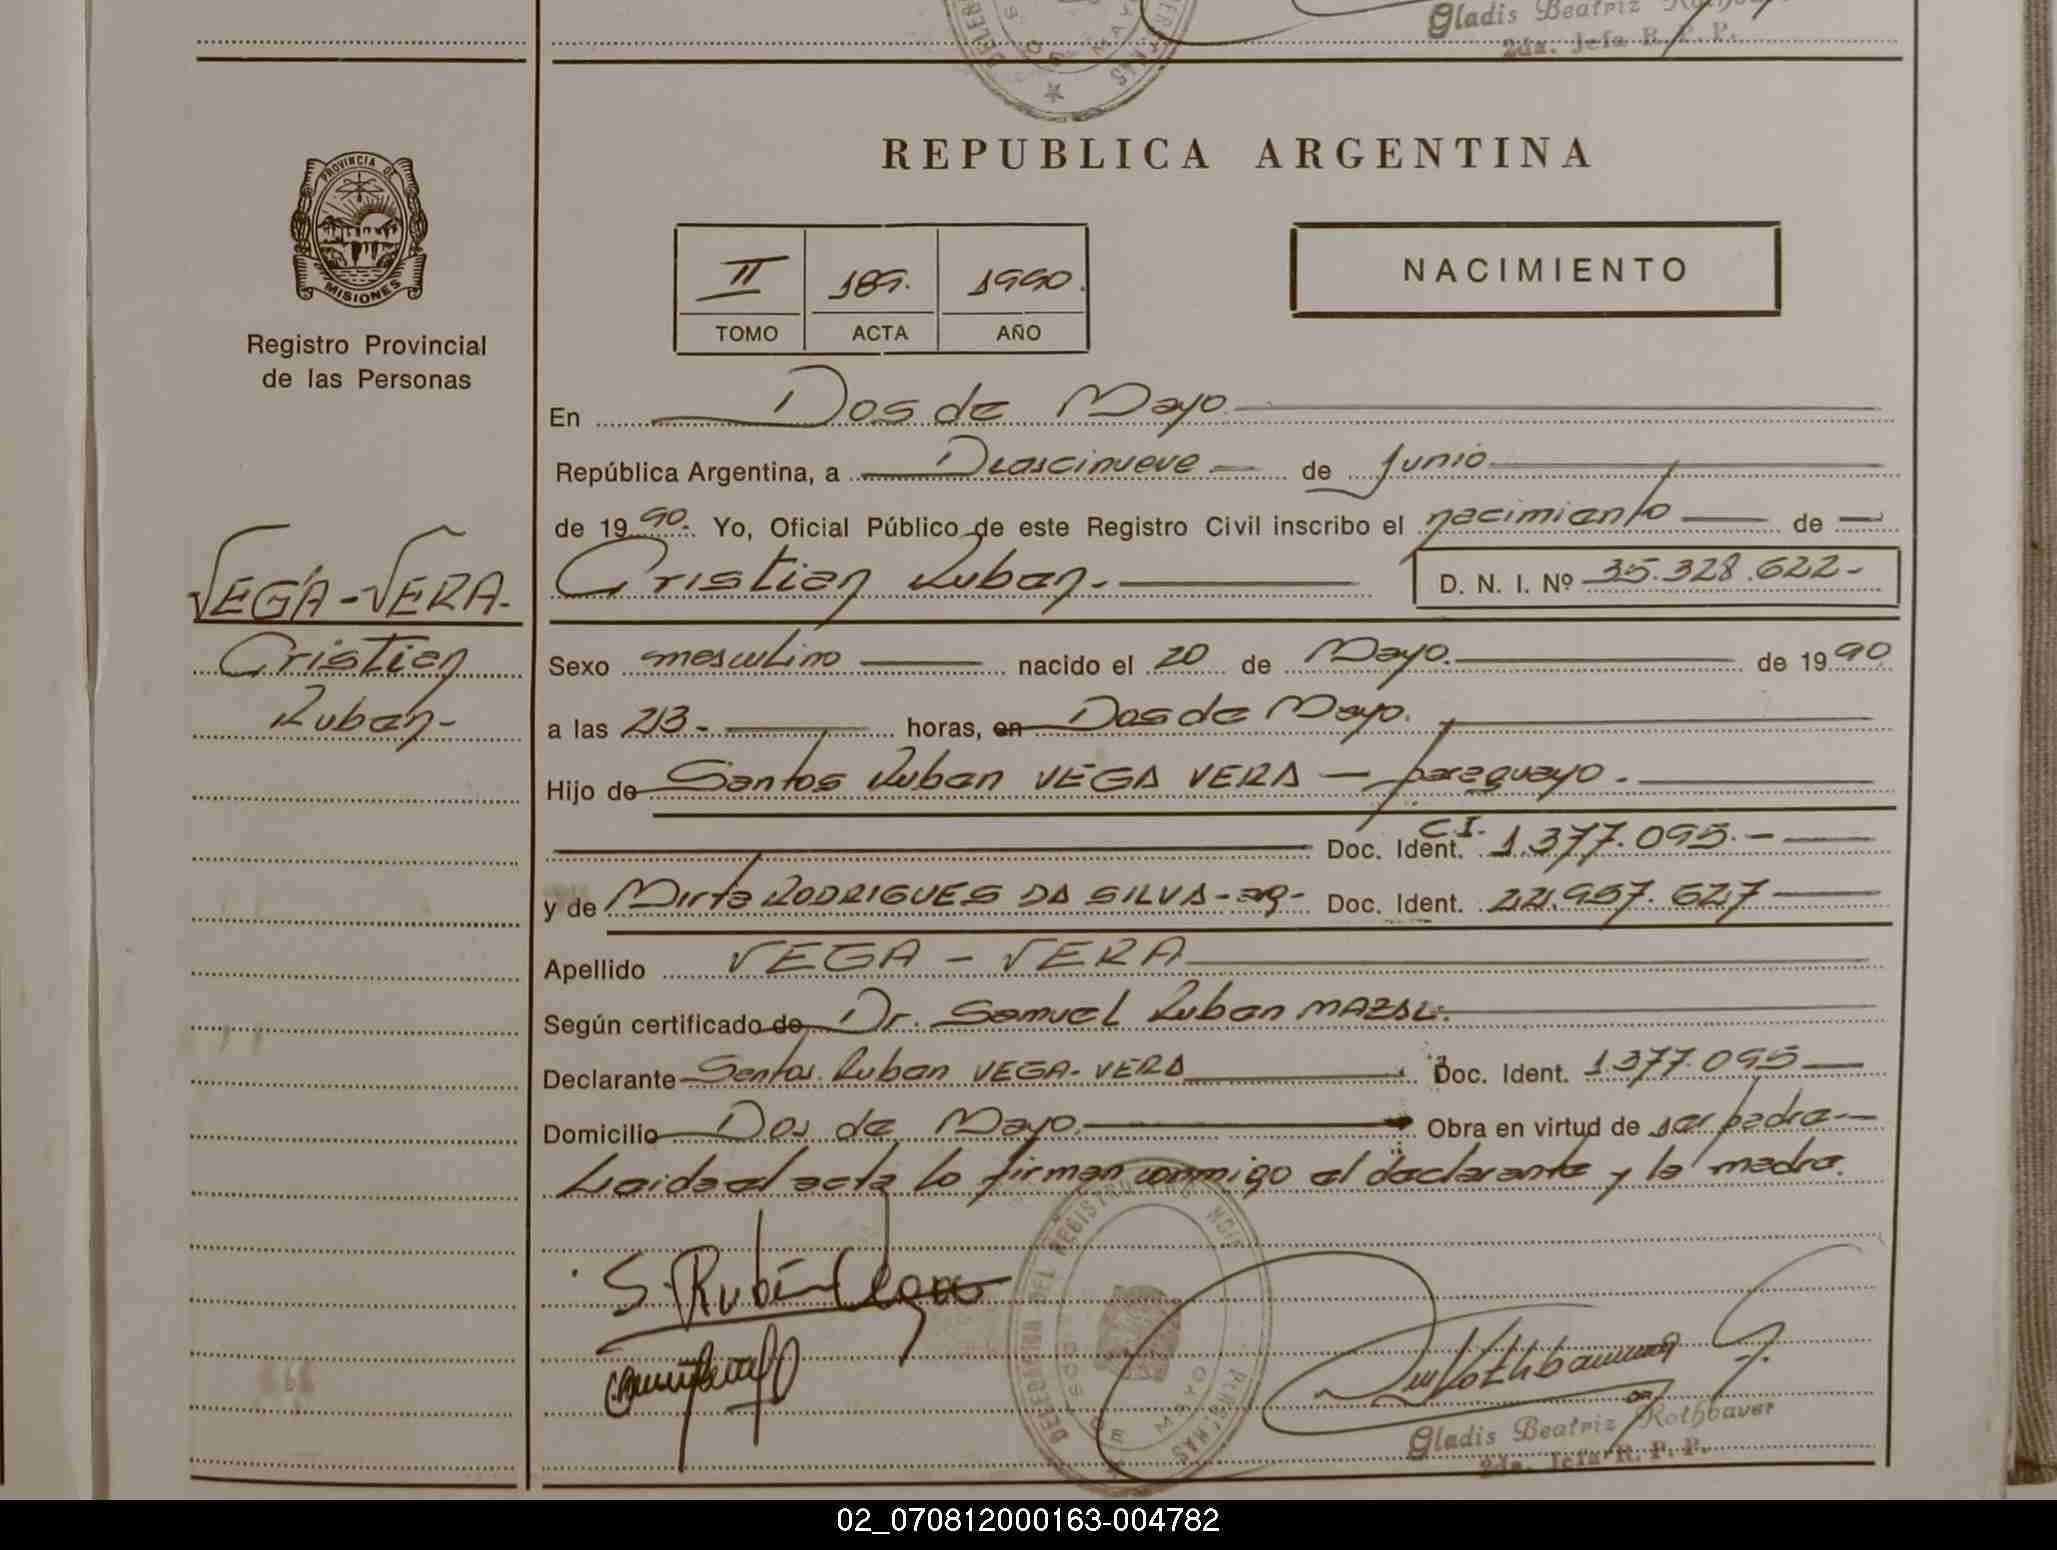 Gladis Beatriz
2da. Jefa R. P. P.
REPUBLICA ARGENTINA
PROVINCIA DE
MISIONES
Registro Provincial
de las Personas
II 189. 1990.
TOMO ACTA AÑO
NACIMIENTO
En Dos de Mayo
República Argentina, a Diescinueve de Junio
de 1990. Yo, Oficial Público de este Registro Civil inscribo el nacimiento de
VEGA-VERA.
Cristian Ruben.
D. N. I. Nº 35.328.622-
Cristian
Ruben-
Sexo masculino nacido el 20 de Mayo. de 1990
a las horas, en Dos de Mayo.
Hijo de Santos Ruben VEGA VERA - paraguayo.
Doc. Ident. C.I. 1.377.095.-
y de Mirta RODRIGUES DA SILVA-ag- Doc. Ident.
Apellido VEGA - VERA
Según certificado de Dr. Samuel Ruben
Declarante Santos Ruben VEGA-VERA Doc. Ident. 1377.095
Domicilio Dos de Mayo. Obra en virtud de ser padre
Leida el acta lo firman conmigo el declarante y la madre.
S. Rubén Vega
DELEGACION DEL REGISTRO PERSONAS
DOS DE MAYO
Gladis Beatriz Rothbauer
2da. Jefa R. P. P.
02_070812000163-004782